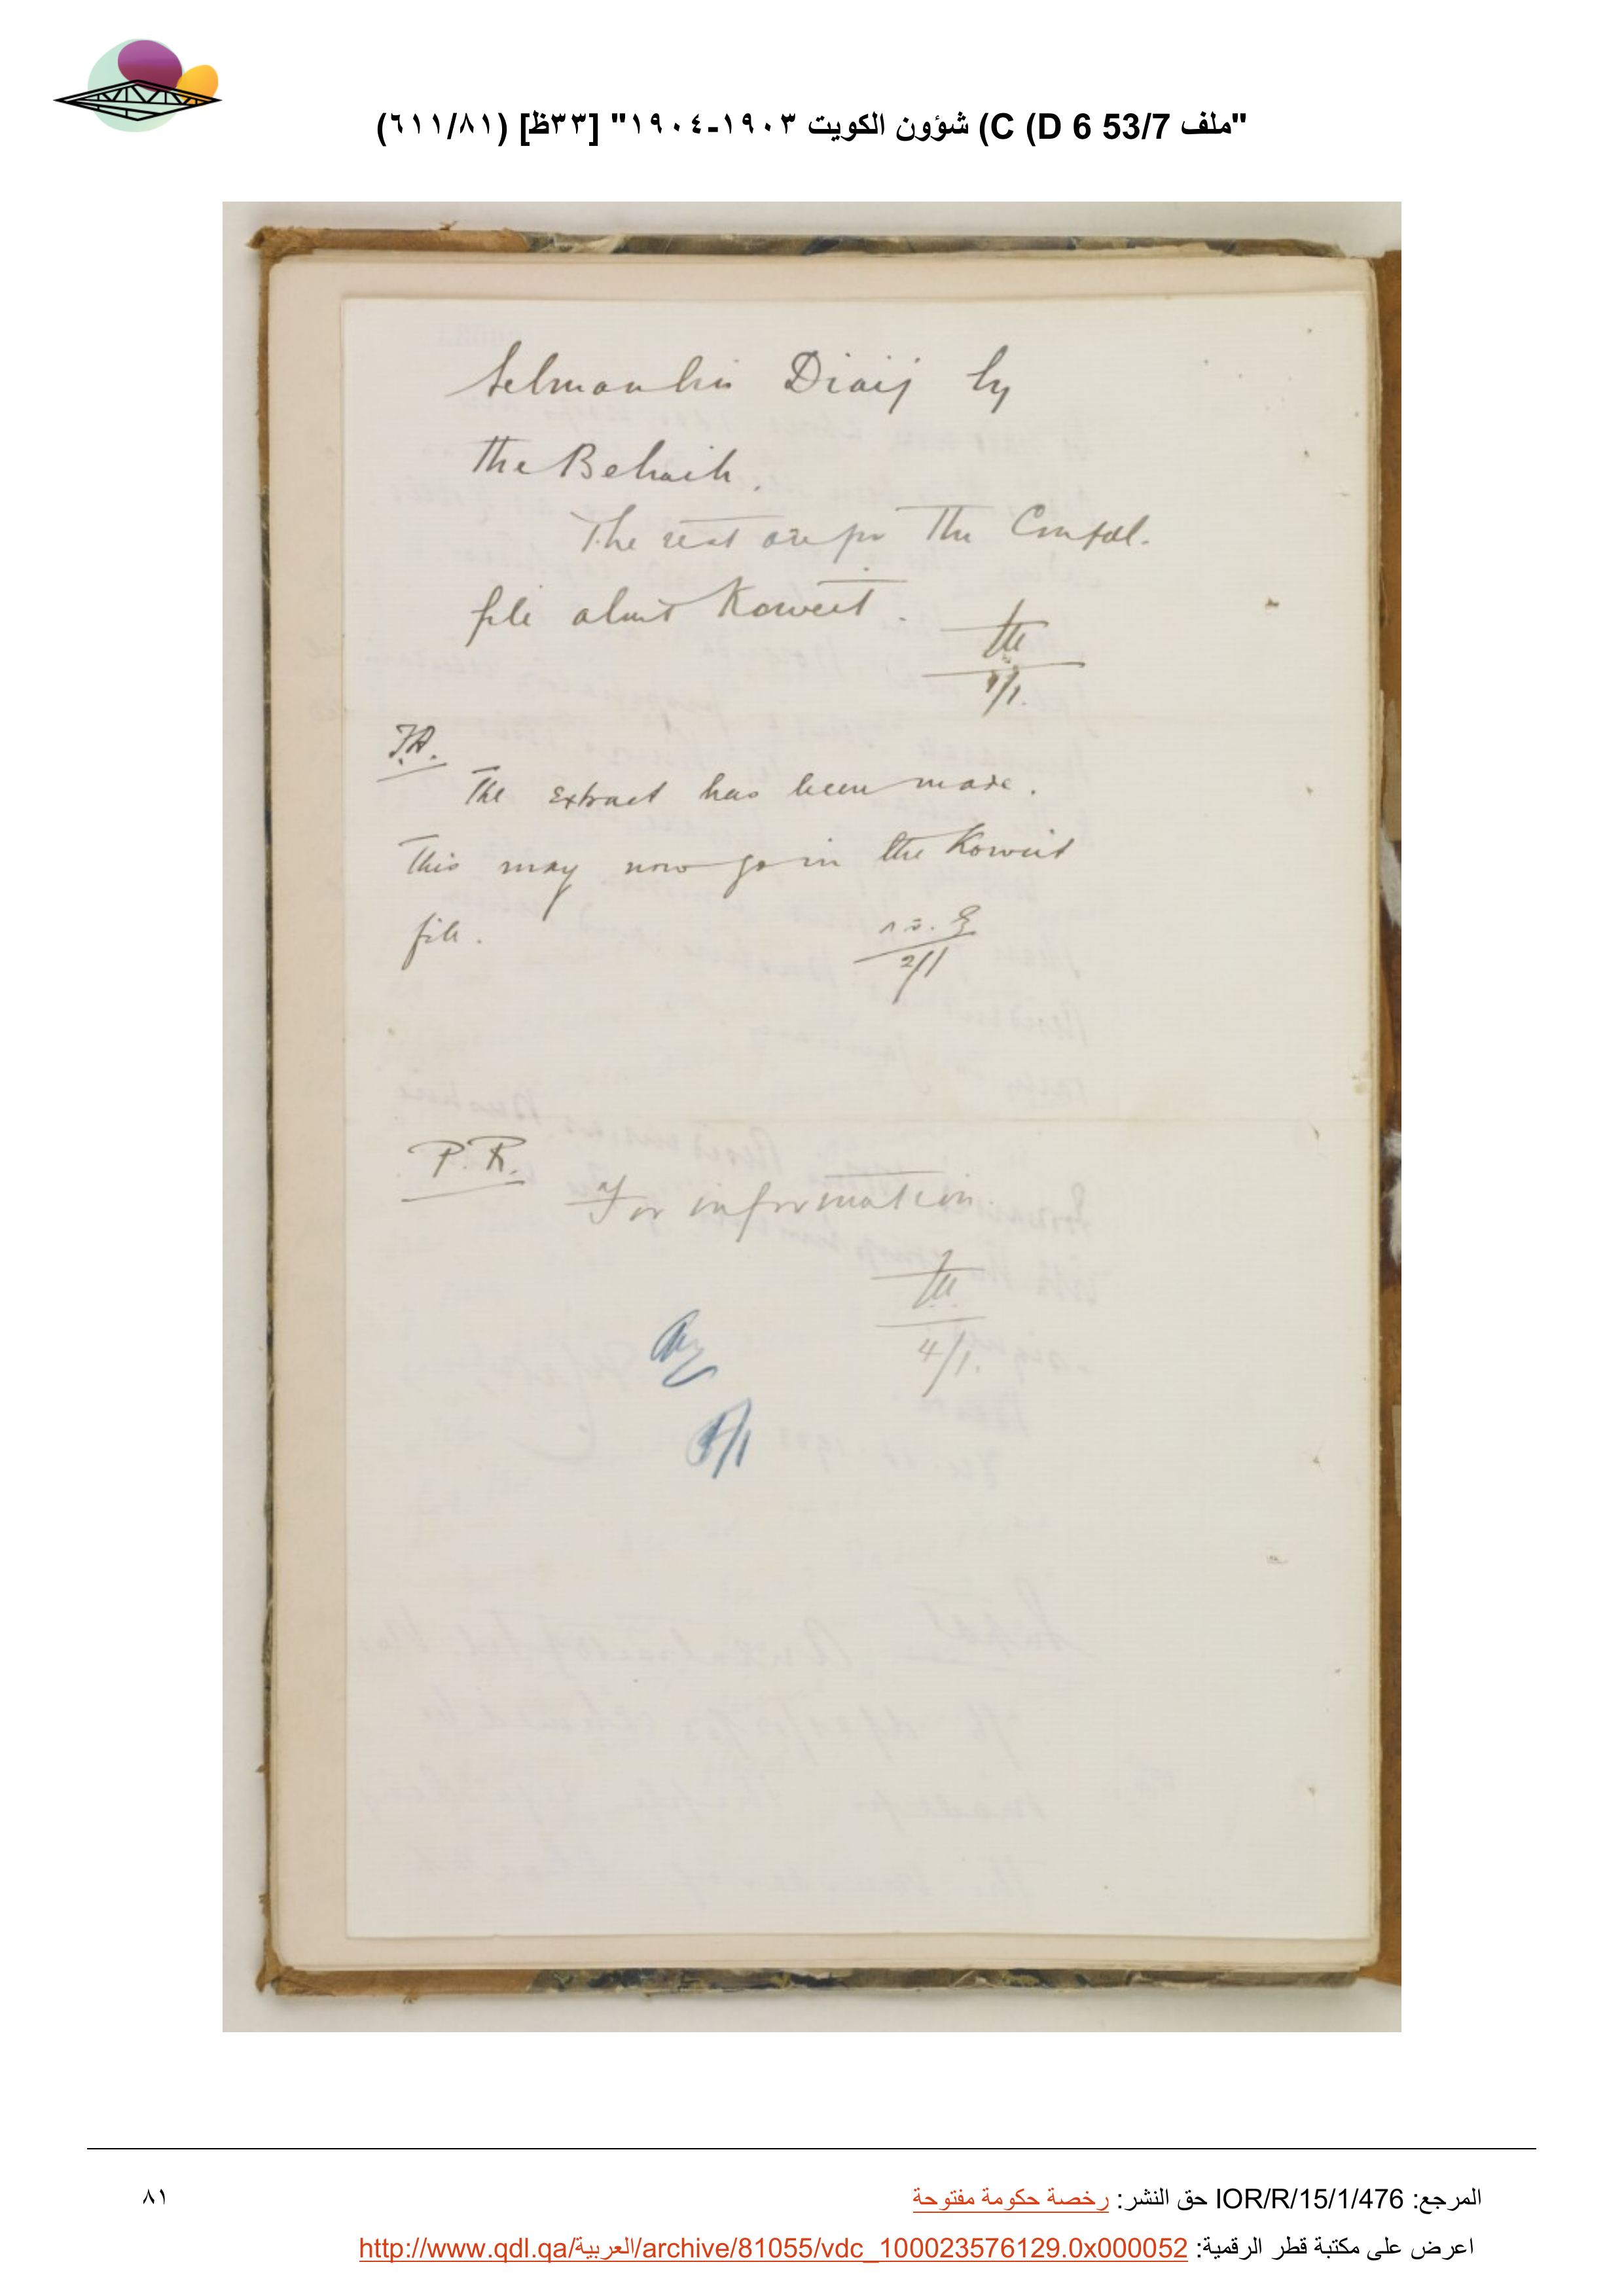 "ملف 53/7 D 6) C) شؤون الكويت ١٩٠٣-١٩٠٤" [٣٣ظ] (٦١١/٨١)
Selman bin Diaij by
the Behaih.
The rest are for the Confdl.
file about Koweit.
1/1.
F.A.
The extract has been made.
This may now go in the Koweit
file.
2/1
P. R.
For information.
4/1.
5/1
المرجع: IOR/R/15/1/476 حق النشر: رخصة حكومة مفتوحة
٨١
اعرض على مكتبة قطر الرقمية: http://www.qdl.qa/العربية/archive/81055/vdc_100023576129.0x000052